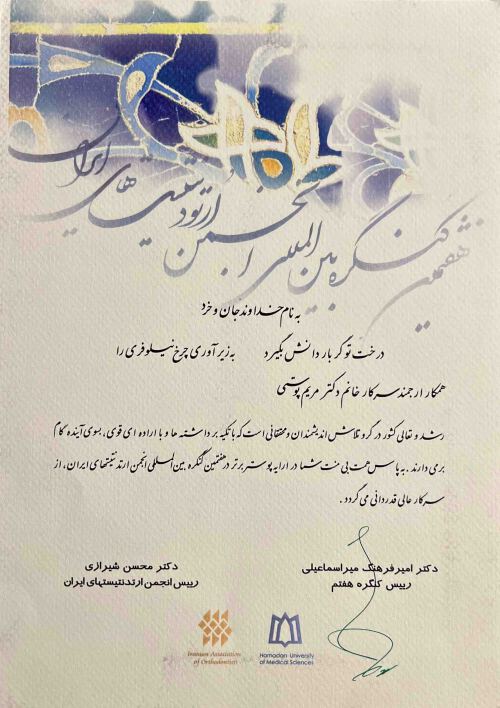 هفتمین کنگره بین المللی انجمن ارتودنتیست های ایران
به نام خداوند جان و خرد
درخت تو گر بار دانش بگیرد به زیر آوری چرخ نیلوفری را
همکار ارجمند سرکار خانم دکتر مریم پوستی
رشد و تعالی کشور در گرو تلاش اندیشمندان و محققانی است که با تکیه بر داشته ها و با اراده ای قوی، بسوی آینده گام
بر می دارند. به پاس همت بی منت شما در ارایه پوستر برتر در هفتمین کنگره بین المللی انجمن ارتدنتیستهای ایران، از
سرکار عالی قدردانی می گردد.
دکتر امیرفرهنگ میراسماعیلی
رییس کنگره هفتم
دکتر محسن شیرازی
رییس انجمن ارتدنتیستهای ایران
Hamadan University
of Medical Sciences
Iranian Association
of Orthodontists